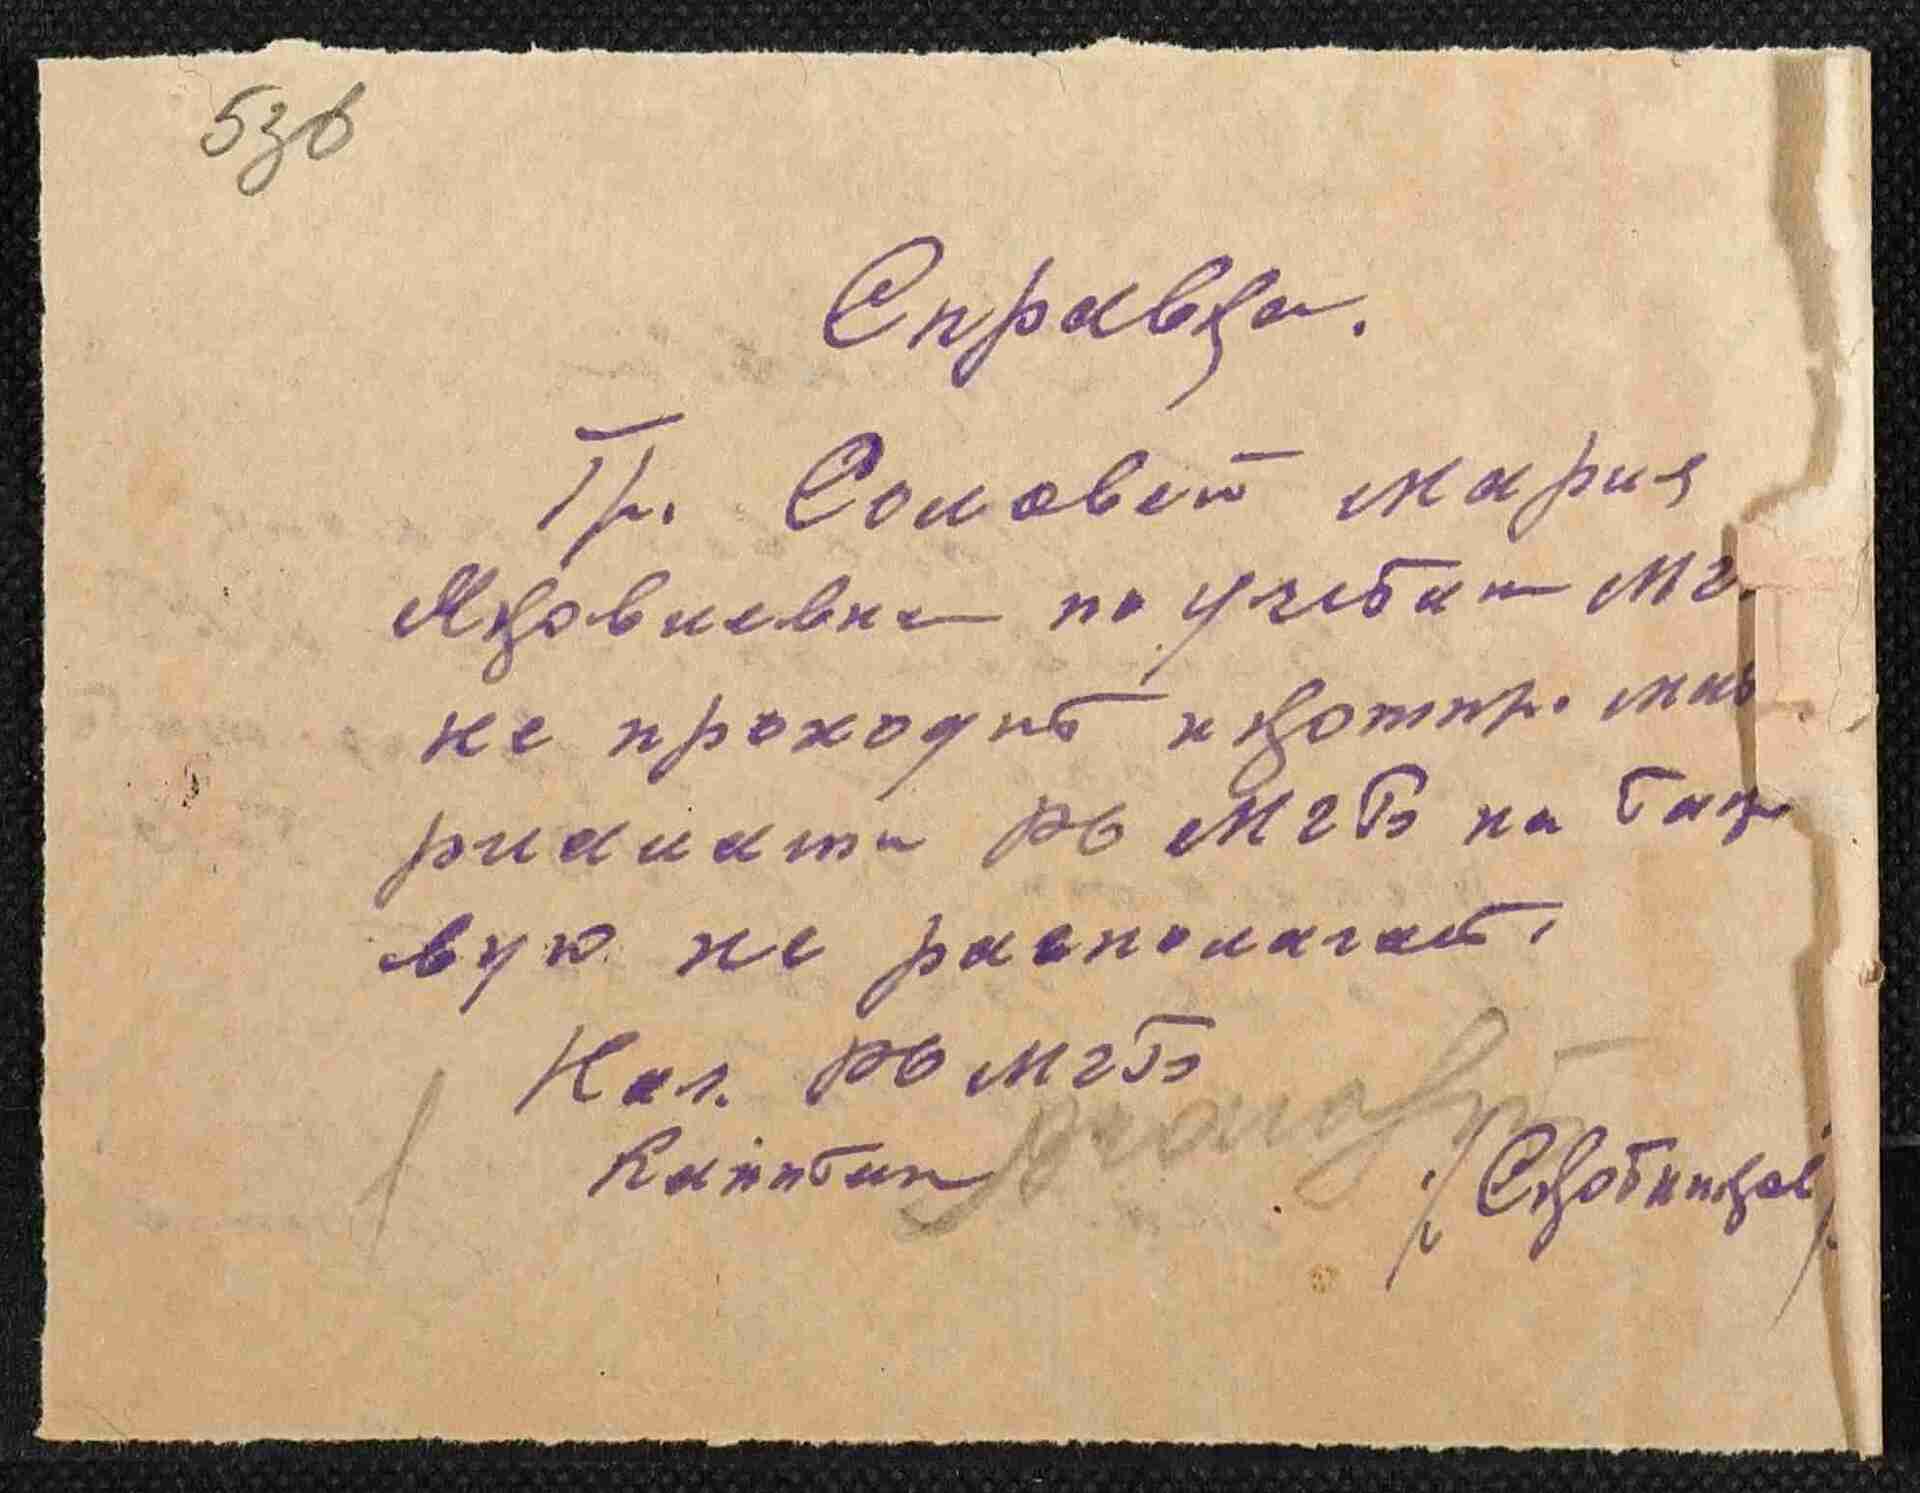 53в
Справка.
Гр. Соловей Мария
Яковлевна по учетам МГ
не проходит и компр. мате
риалами РО МГБ на тако
вую не располагает.
Нач. РО МГБ
Капитан
/Скобников/